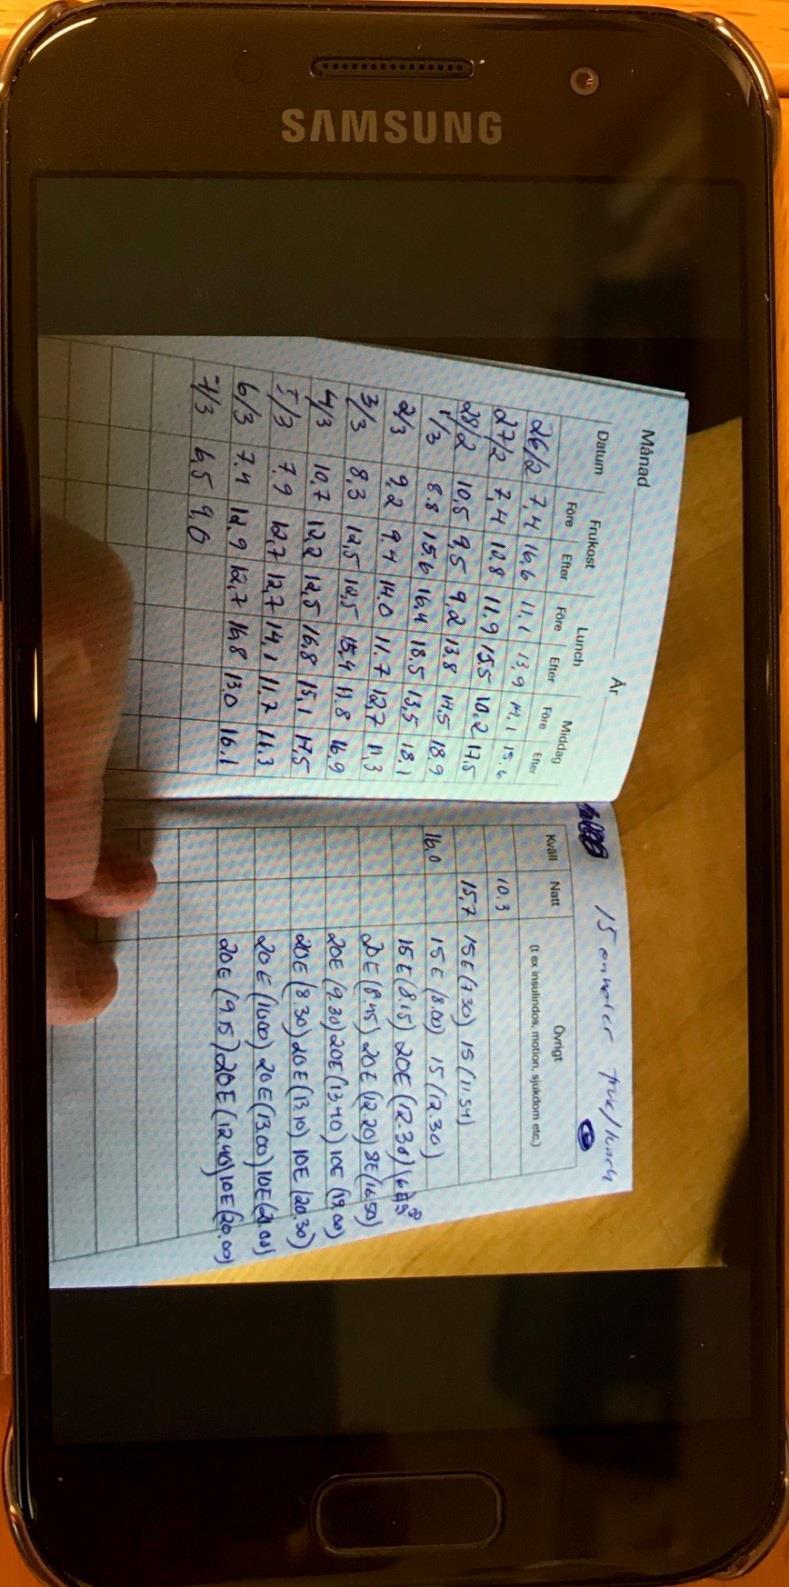 SAMSUNG
Månad År
Datum Frukost Lunch Middag
Före Efter Före Efter Före Efter
26/2 7,4 16,6 11.1 13,9 14,1 15.6
27/2 7,4 12,8 11.9 15.5 10.2 17,5
28/2 10,5 9,5 9,2 13.8 14,5 18.9
1/3 8.8 15.6 16,4 18.5 13,5 18,1
2/3 9,2 9,4 14.0 11.7 12,7 11,3
3/3 8,3 12,5 12,5 15,4 11.8 16,9
4/3 10,7 12,2 12,5 16,8 15,1 17,5
5/3 7.9 12,7 12,7 14,1 11,7 11.3
6/3 7.4 12,9 12,7 16,8 13,0 16.1
7/3 6,5 9,0
15 enheter fruk/lunch
Kväll Natt Övrigt
(t ex insulindos, motion, sjukdom etc.)
10.3
15,7 15E (7.30) 15 (11.54)
16,0 15E (8.00) 15 (12.30)
15E (8.15) 20E (12.30)
20E (8.45) 20E (12.20) 8E (16.50)
20E (9.30) 20E (13.40) 10E (19.00)
20E (8.30) 20E (13.10) 10E (20.30)
20E (10.00) 20E (13.00) 10E
20E (9.15) 20E (12.40) 10E (20.00)